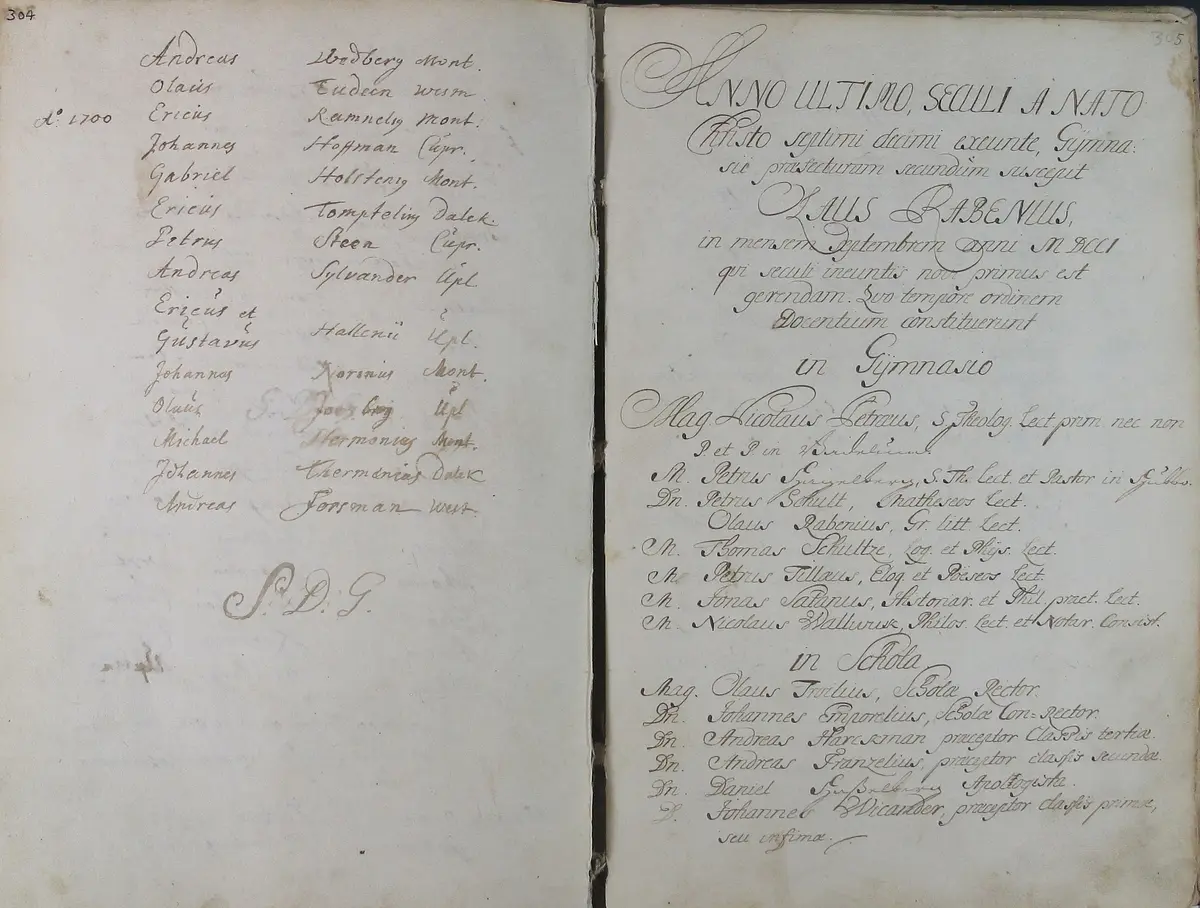 304
Andreas Wedberg Mont.
Olaus Tudeen Wesm.
Ao. 1700 Ericus Ramnelig Mont.
Johannes Hoffman Cupr.
Gabriel Holstenig Mont.
Ericus Tomptelius Dalek.
Petrus Steen Cupr.
Andreas Sylvander Upl
Ericus et
Gustavus Hallenii Upl.
Johannes Norenius Mont.
Olaus Upl
Michael Hermonius Mont.
Johannes Thermænius Dalek
Andreas Forsman West.
S. D. G.
305
ANNO ULTIMO, SECULI A NATO
Christo septimi decimi exeunte, Gymna:
sii præfecturam secundùm suscepit
OLAUS RABENIUS,
in mensem Septembrem anni MDCCI
qui seculi ineuntis novi primus est
gerendam. Quo tempore ordinem
Docentium constituerunt
in Gymnasio
Mag. Nicolaus Petræus, S. Theolog. Lect. prim. nec non
P. et P. in
M. Petrus S. Th. Lect. et Pastor in
Dn. Petrus Schult, Matheseos Lect.
Olaus Rabenius, Gr. litt. Lect.
M. Thomas Schultze, Log. et Phys. Lect.
M. Petrus Tillæus, Eloq. et Poëseos Lect.
M. Jonas Salanus, Historiar. et Phil. pract. Lect.
M. Nicolaus Wallwijk, Philos. Lect. et Notar. Consist.
in Schola
Mag. Olaus Troilius, Scholæ Rector.
Dn. Johannes Emporelius, Scholæ Con-Rector.
Dn. Andreas Harckman præceptor Classis tertiæ.
Dn. Andreas Franzelius, præceptor classis secundæ.
Dn. Daniel Hasselberg Apologista.
D. Johannes Wicander, præceptor classis primæ,
seu infimæ.